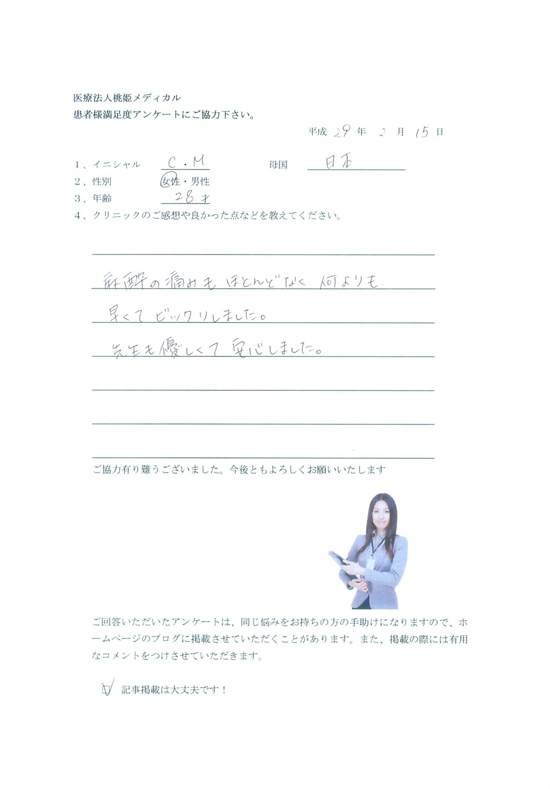 医療法人桃姫メディカル
患者様満足度アンケートにご協力下さい。
平成 29 年 2 月 15 日
1、イニシャル C・M 母国 日本
2、性別 女性・男性
3、年齢 28才
4、クリニックのご感想や良かった点などを教えてください。
麻酔の痛みもほとんどなく 何よりも
早くてビックリしました。
先生も優しくて安心しました。
ご協力有り難うございました。今後ともよろしくお願いいたします
ご回答いただいたアンケートは、同じ悩みをお持ちの方の手助けになりますので、ホ
ームページのブログに掲載させていただくことがあります。また、掲載の際には有用
なコメントをつけさせていただきます。
記事掲載は大丈夫です！